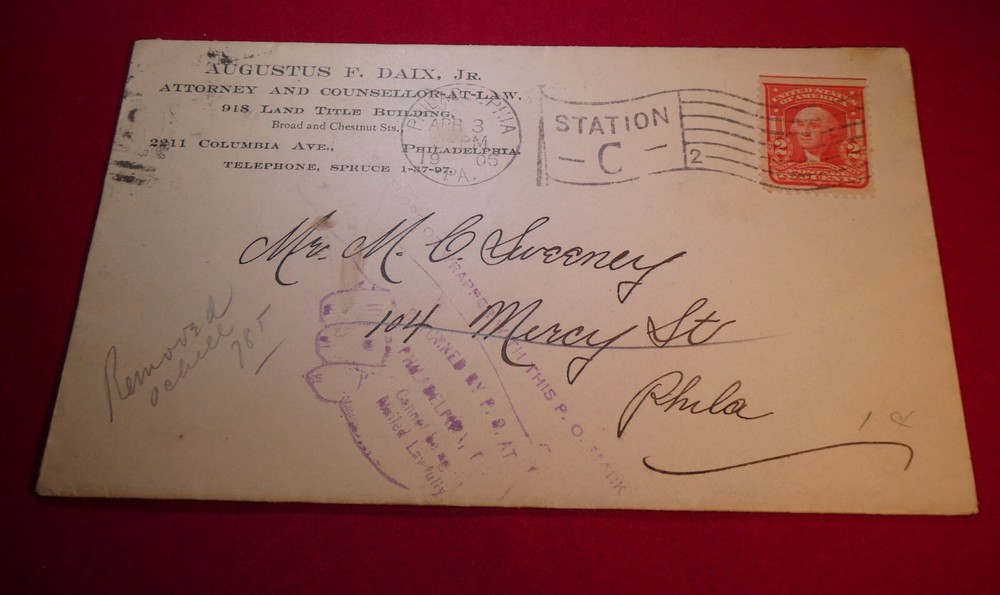 AUGUSTUS F. DAIX, JR.
ATTORNEY AND COUNSELLOR-AT-LAW,
918 LAND TITLE BUILDING,
Broad and Chestnut Sts.,
2211 COLUMBIA AVE., PHILADELPHIA.
TELEPHONE, SPRUCE 1-37-97.
PHILADELPHIA
APR 3
PM
19 05
PA.
STATION
C
2
UNITED STATES
OF AMERICA
2 2
POSTAGE
TWO CENTS
Mr. M. C. Sweeney
104 Mercy St
Phila
Removed
785
WRAPPER WITH THIS P. O. MARK
RETURNED BY P. O. AT
PHILADELPHIA,
Cannot be
Mailed Lawfully